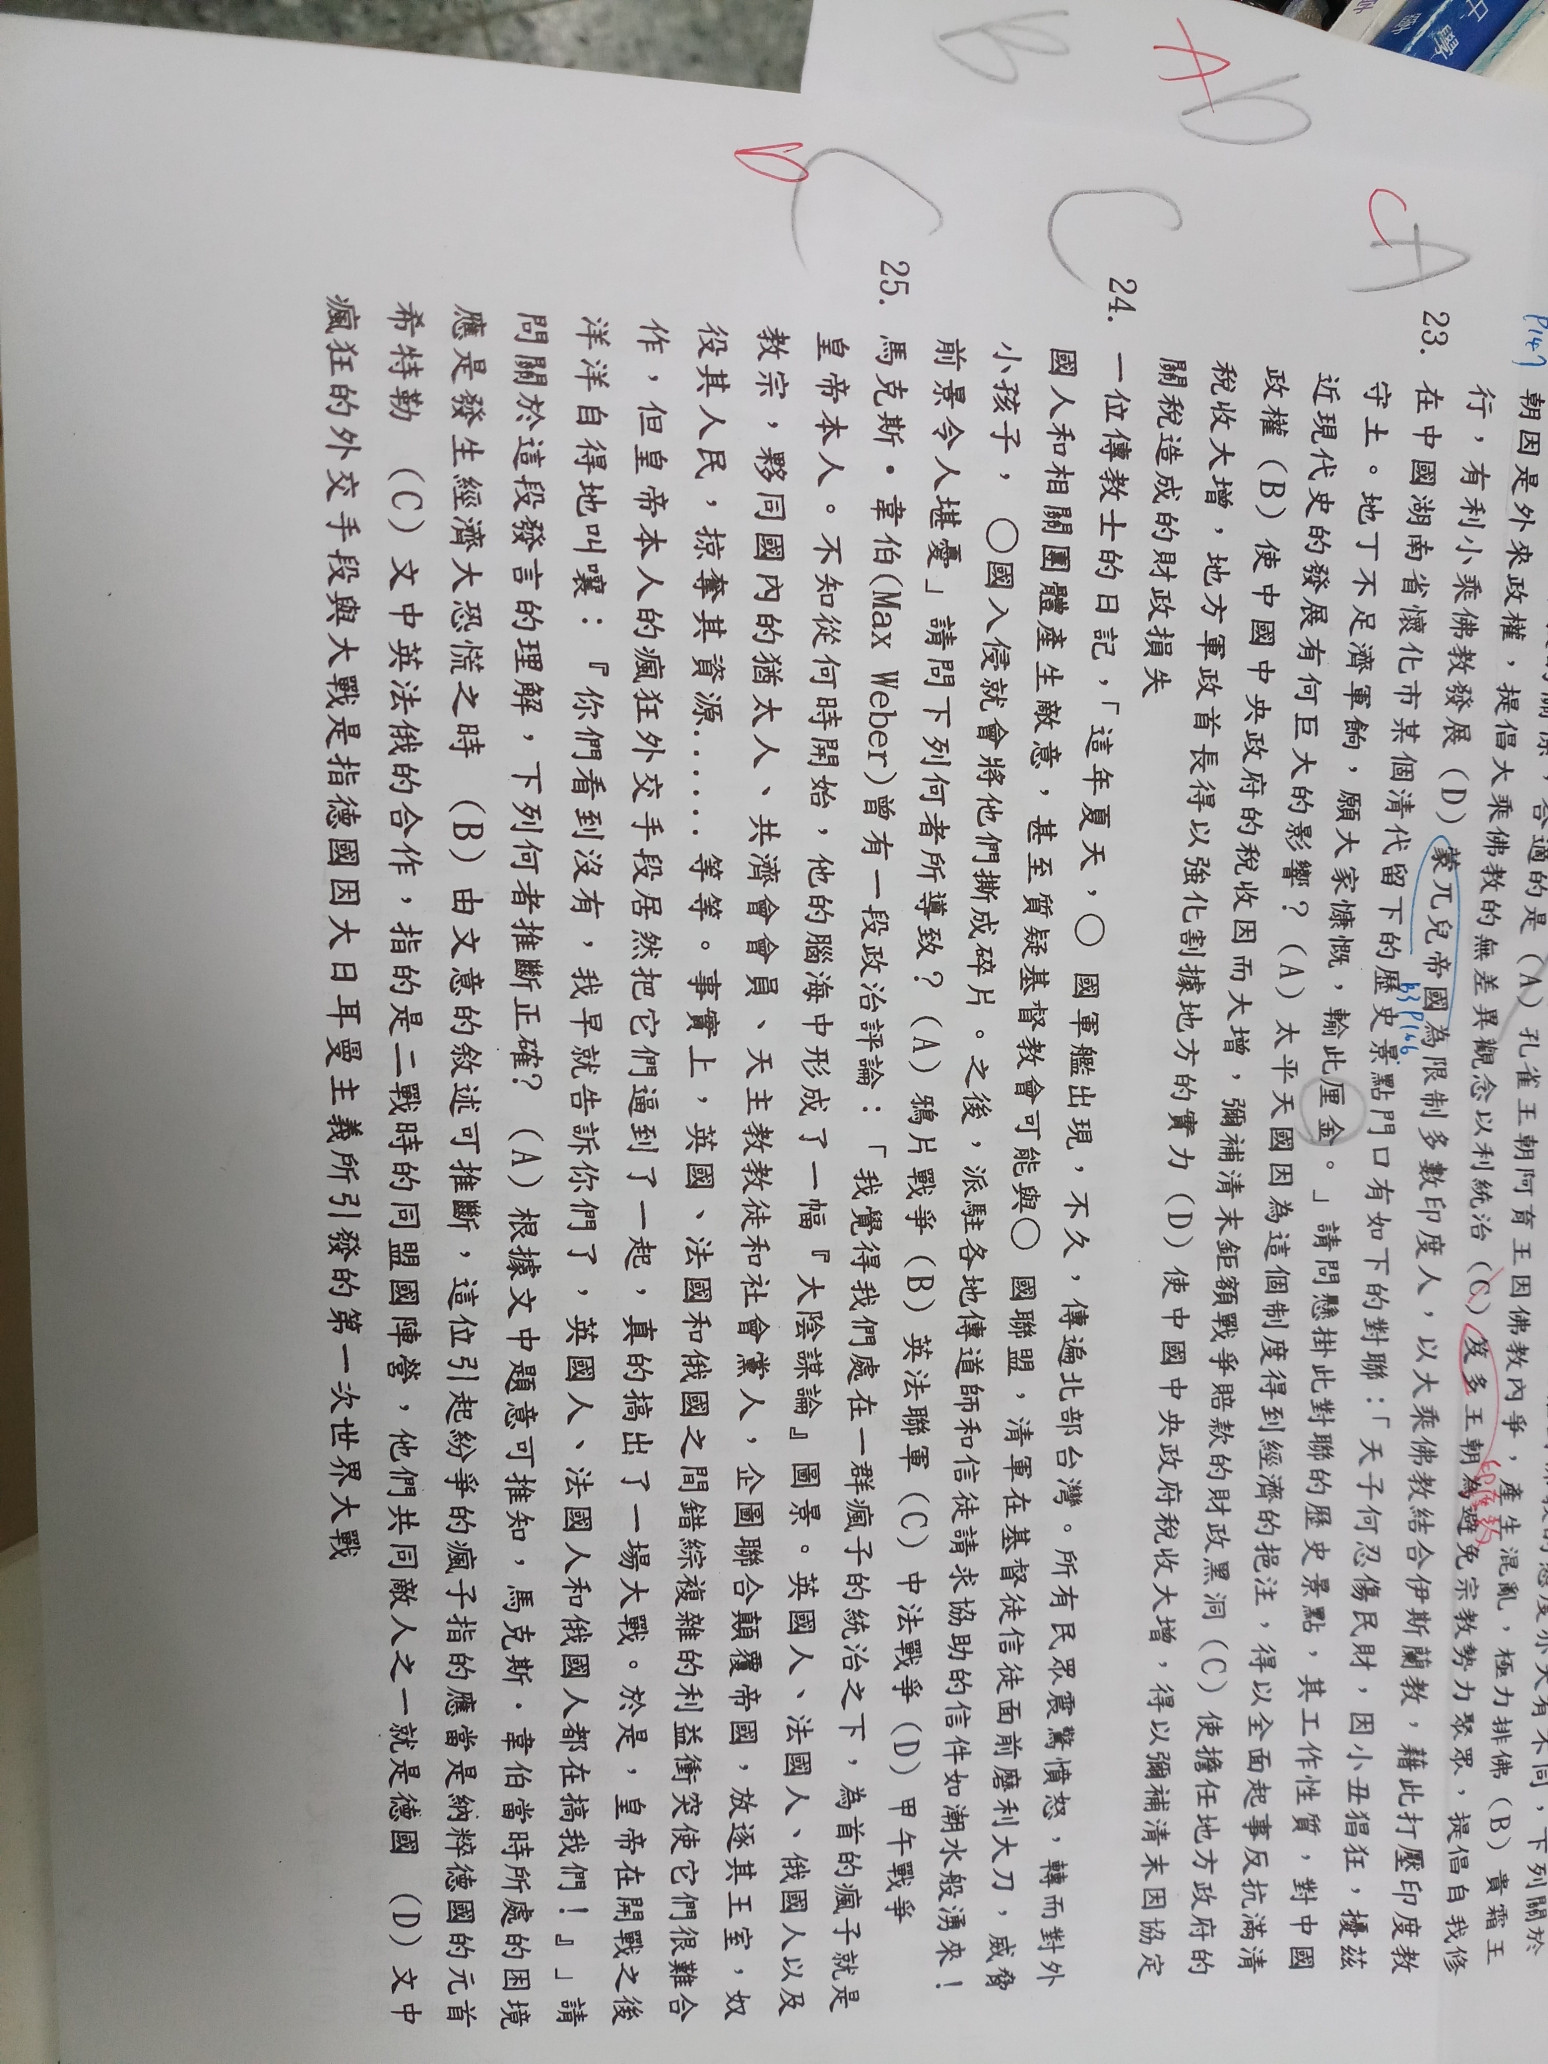 的關係，合適的是 (A) 孔雀王朝阿育王因佛教內爭，產生混亂，極力排佛 (B) 貴霜王
P147 朝因是外來政權，提倡大乘佛教的無差異觀念以利統治 (C) 笈多王朝為避免宗教勢力聚眾，提倡自我修
印度教
行，有利小乘佛教發展 (D) 蒙兀兒帝國為限制多數印度人，以大乘佛教結合伊斯蘭教，藉此打壓印度教
B3 P166
A C 23. 在中國湖南省懷化市某個清代留下的歷史景點門口有如下的對聯：「天子何忍傷民財，因小丑猖狂，擾茲
守土。地丁不足濟軍餉，願大家慷慨，輸此厘金。」請問懸掛此對聯的歷史景點，其工作性質，對中國
近現代史的發展有何巨大的影響？(A) 太平天國因為這個制度得到經濟的挹注，得以全面起事反抗滿清
政權 (B) 使中國中央政府的稅收因而大增，彌補清末鉅額戰爭賠款的財政黑洞 (C) 使擔任地方政府的
稅收大增，地方軍政首長得以強化割據地方的實力 (D) 使中國中央政府稅收大增，得以彌補清末因協定
關稅造成的財政損失
C 24. 一位傳教士的日記，「這年夏天，○ 國軍艦出現，不久，傳遍北部台灣。所有民眾震驚憤怒，轉而對外
國人和相關團體產生敵意，甚至質疑基督教會可能與○ 國聯盟，清軍在基督徒信徒面前磨利大刀，威脅
小孩子，○國入侵就會將他們撕成碎片。之後，派駐各地傳道師和信徒請求協助的信件如潮水般湧來！
前景令人堪憂」請問下列何者所導致？(A) 鴉片戰爭 (B) 英法聯軍 (C) 中法戰爭 (D) 甲午戰爭
C D 25. 馬克斯·韋伯(Max Weber)曾有一段政治評論：「我覺得我們處在一群瘋子的統治之下，為首的瘋子就是
皇帝本人。不知從何時開始，他的腦海中形成了一幅『大陰謀論』圖景。英國人、法國人、俄國人以及
教宗，夥同國內的猶太人、共濟會會員、天主教教徒和社會黨人，企圖聯合顛覆帝國，放逐其王室，奴
役其人民，掠奪其資源......等等。事實上，英國、法國和俄國之間錯綜複雜的利益衝突使它們很難合
作，但皇帝本人的瘋狂外交手段居然把它們逼到了一起，真的搞出了一場大戰。於是，皇帝在開戰之後
洋洋自得地叫嚷：『你們看到沒有，我早就告訴你們了，英國人、法國人和俄國人都在搞我們！』」請
問關於這段發言的理解，下列何者推斷正確？(A) 根據文中題意可推知，馬克斯·韋伯當時所處的困境
應是發生經濟大恐慌之時 (B) 由文意的敘述可推斷，這位引起紛爭的瘋子指的應當是納粹德國的元首
希特勒 (C) 文中英法俄的合作，指的是二戰時的同盟國陣營，他們共同敵人之一就是德國 (D) 文中
瘋狂的外交手段與大戰是指德國因大日耳曼主義所引發的第一次世界大戰
D A
B